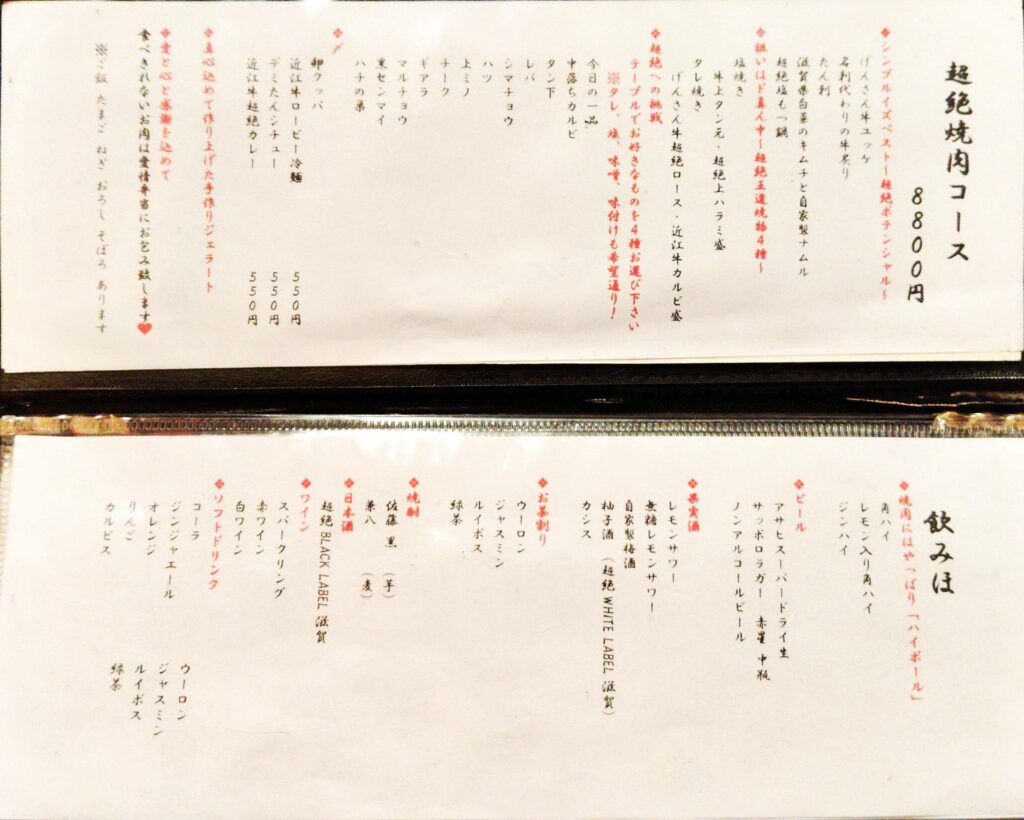 超絶焼肉コース
8800円
❖シンプルイズベスト～超絶ポテンシャル～
げんさん牛ユッケ
名刺代わりの牛炙り
たん刺
滋賀県白菜のキムチと自家製ナムル
超絶塩もつ鍋
❖狙いはド真ん中～超絶王道焼物4種～
塩焼き
牛上タン元・超絶上ハラミ盛
タレ焼き
げんさん牛超絶ロース・近江牛カルビ盛
❖超絶への挑戦
テーブルでお好きなものを4種お選び下さい
※タレ、塩、味噌、味付けも希望通り!
今日の一品
中落ちカルビ
タン下
レバ
シマチョウ
ハツ
上ミノ
チーク
ギアラ
マルチョウ
黒センマイ
ハチの巣
❖〆
卵クッパ
近江牛ロービー冷麺 550円
デミたんシチュー 550円
近江牛超絶カレー 550円
❖真心込めて作り上げた手作りジェラート
❖愛と心と感謝を込めて
食べきれないお肉は愛情弁当にお包み致します♥
※ご飯 たまご ねぎ おろし そぼろ あります
飲みほ
❖焼肉にはやっぱり「ハイボール」
角ハイ
レモン入り角ハイ
ジンハイ
❖ビール
アサヒスーパードライ生
サッポロラガー 赤星 中瓶
ノンアルコールビール
❖果実酒
レモンサワー
無糖レモンサワー
自家製梅酒
柚子酒 (超絶 WHITE LABEL 滋賀)
カシス
❖お茶割り
ウーロン
ジャスミン
ルイボス
緑茶
❖焼酎
佐藤 黒 (芋)
兼八 (麦)
❖日本酒
超絶 BLACK LABEL 滋賀
❖ワイン
スパークリング
赤ワイン
白ワイン
❖ソフトドリンク
コーラ
ジンジャエール
オレンジ
りんご
カルピス
ウーロン
ジャスミン
ルイボス
緑茶